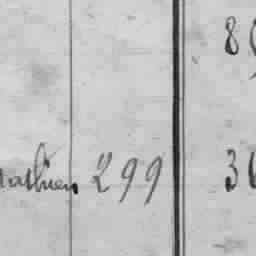 8
Mathieu 299 36